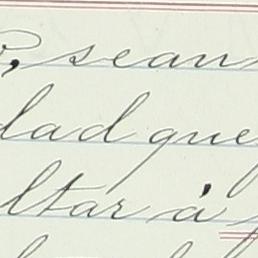 sean
dad que
ltar á